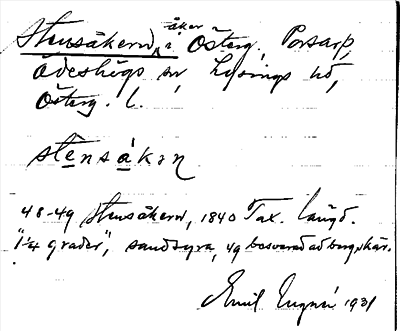 Stensåkern, åker i Österg. Porsarp,
Ödeshögs sn, Lysings hd,
Österg. l.
stensåkan
48-49 Stensåkern, 1840 Tax. längd.
"1¼ grader", sandsyra, 49 besvärad ad berg, skär.
Emil 1931